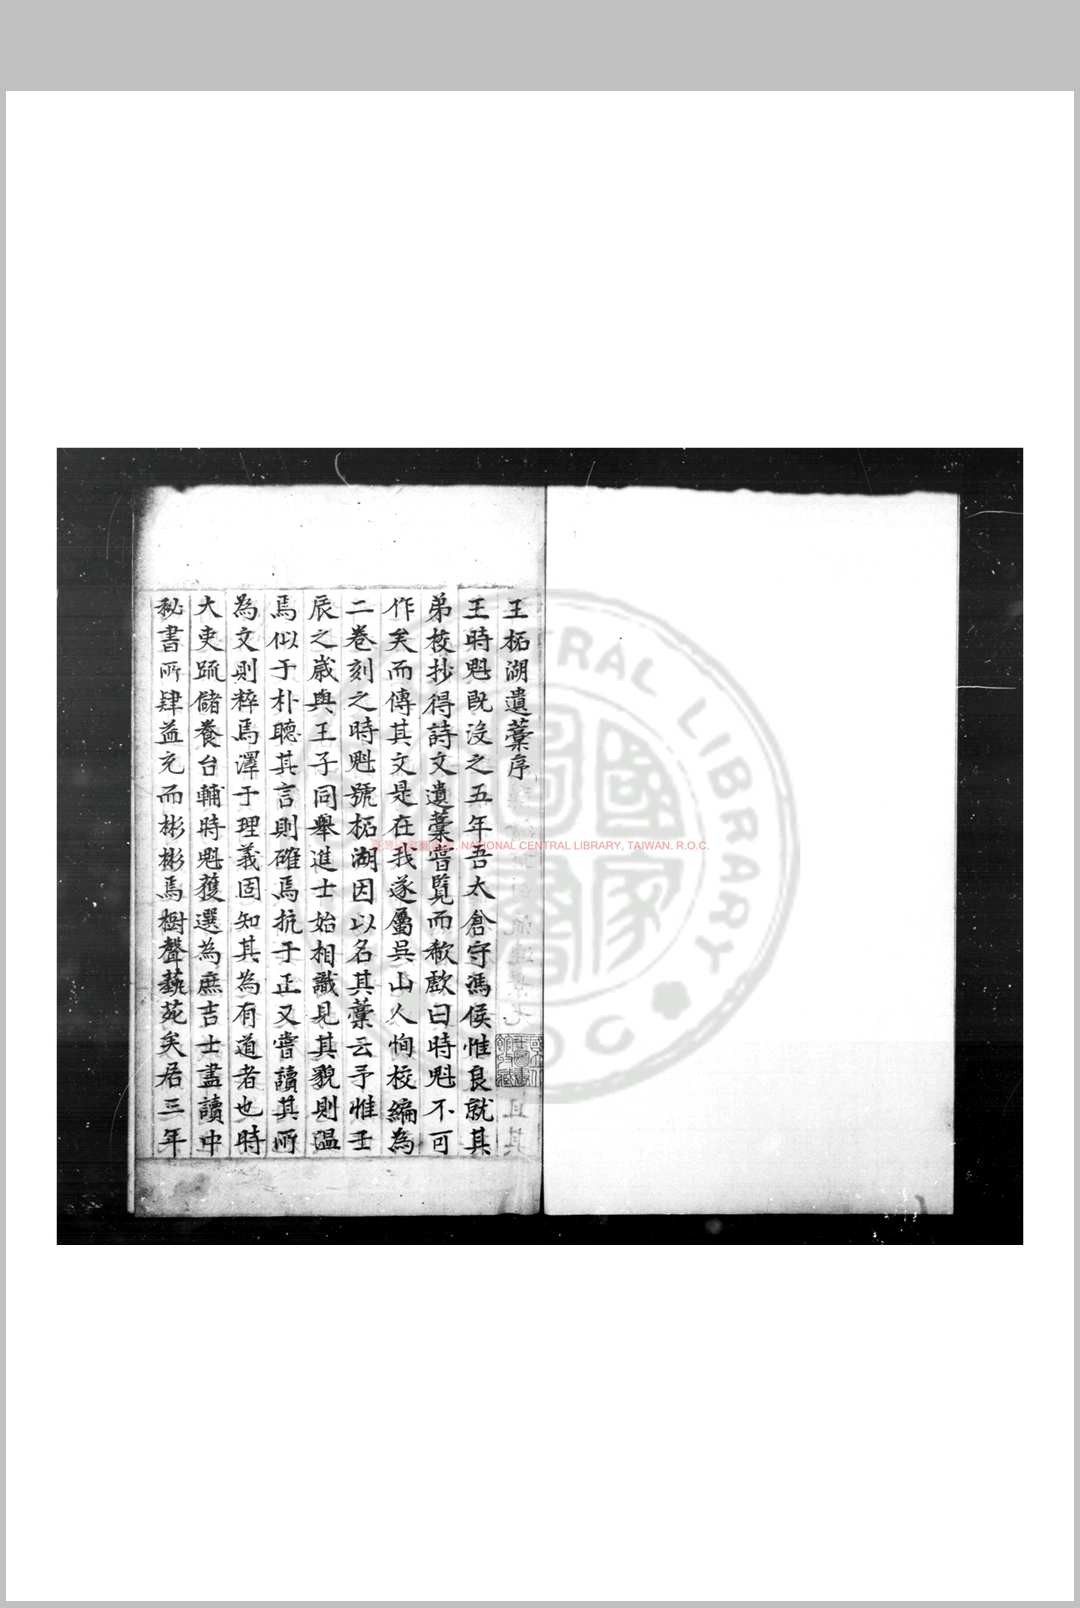 王柘湖遺藁序
王時魁既沒之五年吾太倉守馮侯惟良就其
弟校抄得詩文遺藁嘗覽而欷歔曰時魁不可
作矣而傳其文是在我遂屬吳山人恂校編為
二卷刻之時魁號柘湖因以名其藁云予惟壬
辰之歲與王子同舉進士始相識見其貌則溫
焉似于朴聽其言則確焉抗于正又嘗讀其所
為文則粹焉澤于理義固知其為有道者也時
大吏疏儲養台輔時魁獲選為庶吉士盡讀中
秘書所肄益充而彬彬焉樹聲藝苑矣居三年
NATIONAL CENTRAL LIBRARY, TAIWAN, R.O.C.
CENTRAL LIBRARY